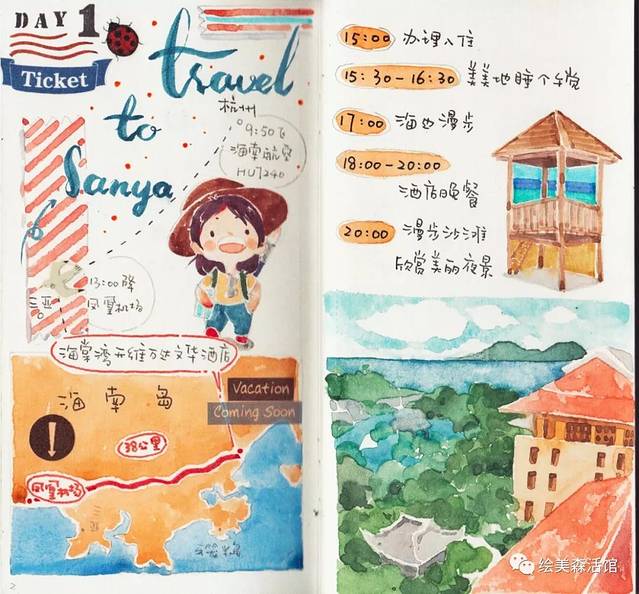 DAY 1
Ticket
travel
to
Sanya
杭州
9:50飞
海南航空
HU7240
13:00降
凤凰机场
三亚
海棠湾开维万达文华酒店
Vacation
Coming Soon
海南岛
!
38公里
凤凰机场
三亚
2
15:00 办理入住
15:30-16:30 美美地睡个午觉
17:00 海边漫步
18:00-20:00
酒店晚餐
20:00 漫步沙滩
欣赏美丽夜景
绘美森活馆